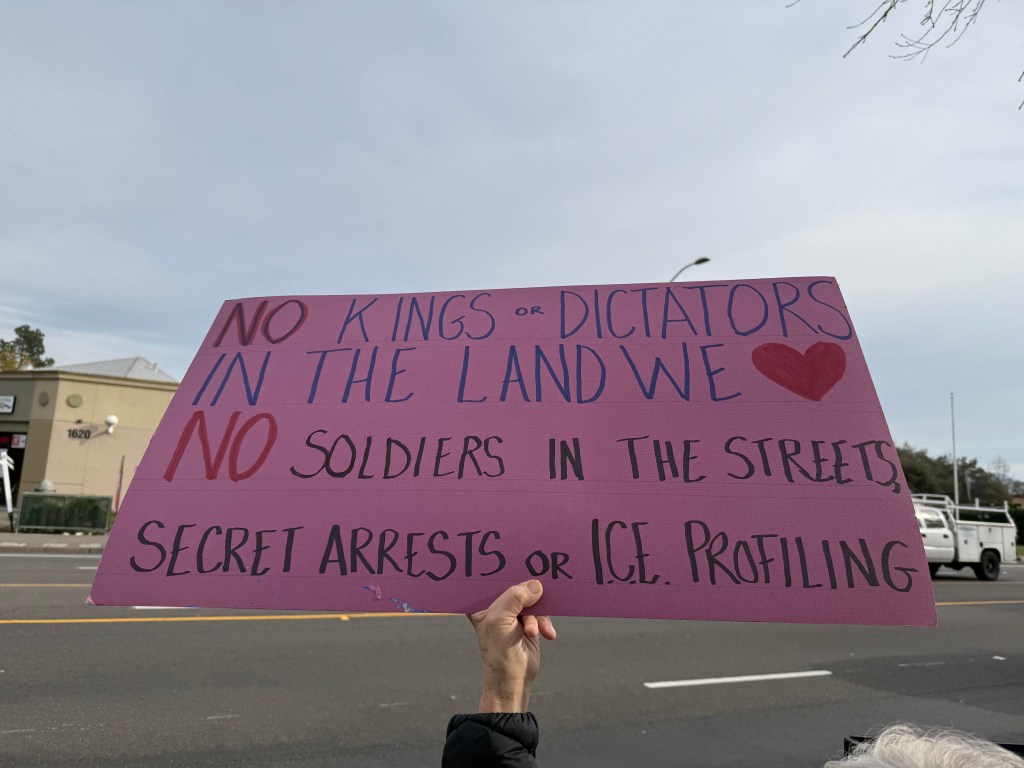 NO KINGS OR DICTATORS
IN THE LAND WE ❤
NO SOLDIERS IN THE STREETS,
SECRET ARRESTS OR I.C.E. PROFILING
1620